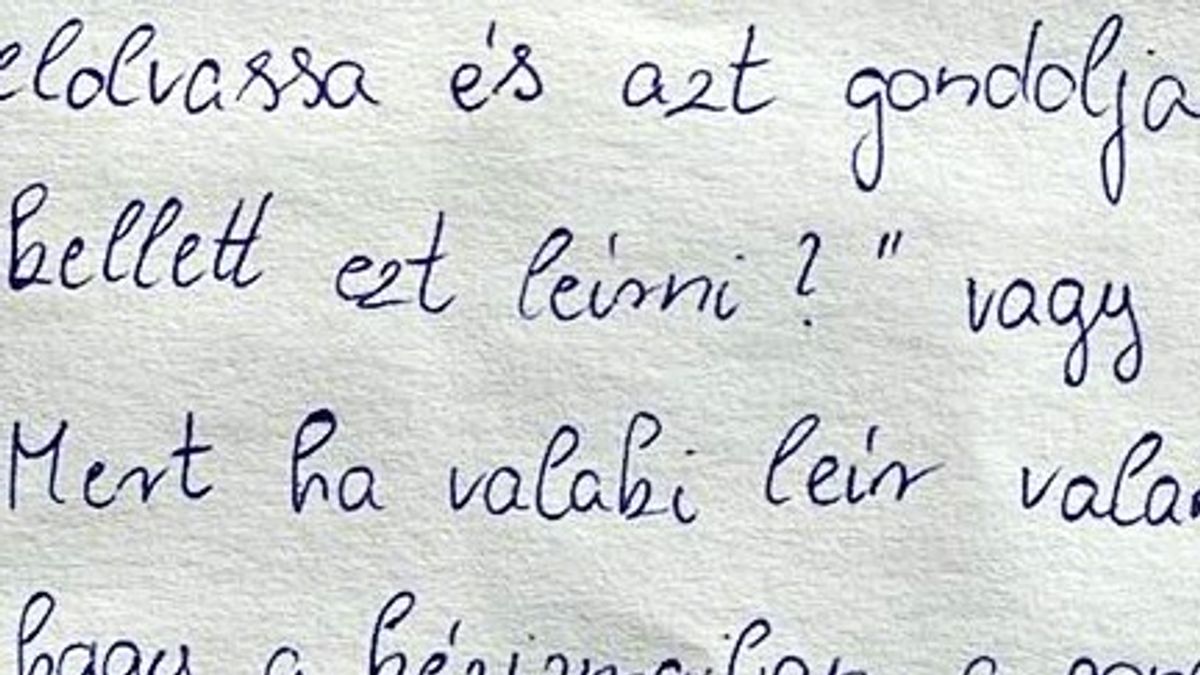 elolvassa és azt gondolja
kellett ezt leírni?" vagy
Mert ha valaki leír valam
hagy a kézizmaiban a